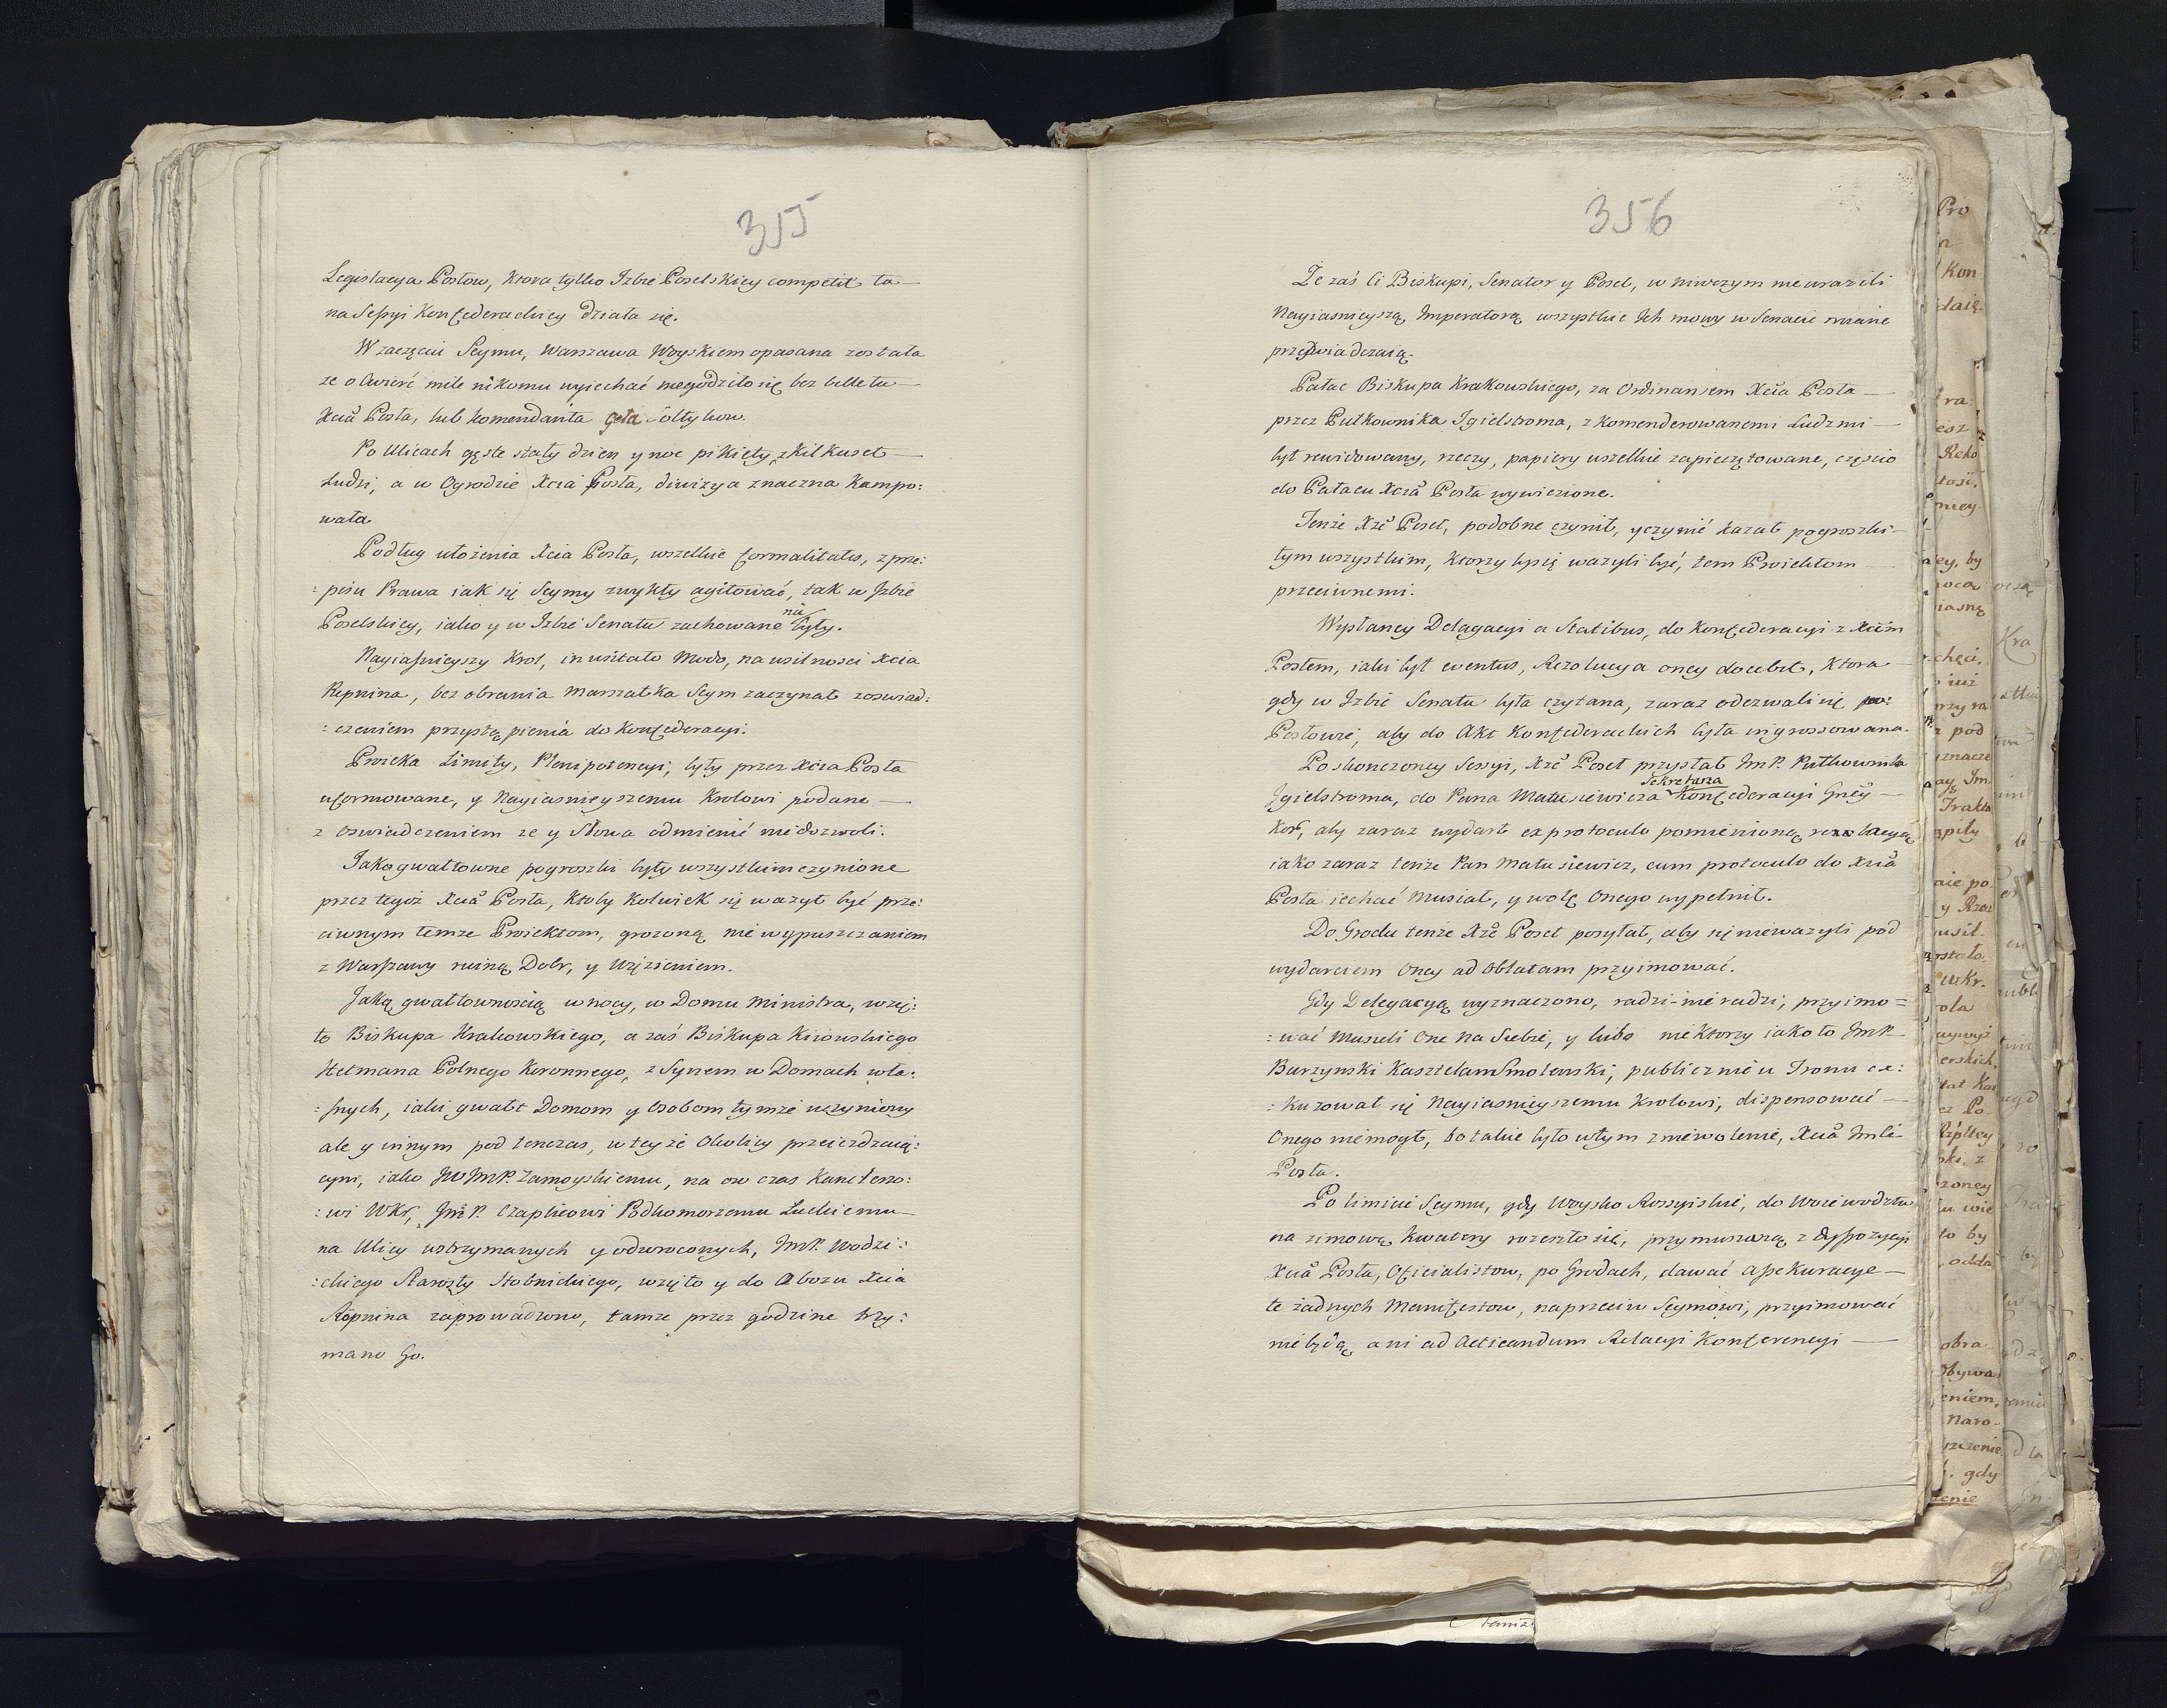 355
Legislacya Posłow, ktora tylko Izbie Poselskiey competit ta
na Sessyi Konfederackiey działa się.
W zaczęciu Seymu, Warszawa Woyskiem opasana została
ze o cwierć mile nikomu wyiechać niegodziło się bez billetu
Xcia Posła, lub komendanta Gnla Sołtykow.
Po Ulicach gęste stały dzien y noc pikiety, z kilkuset
Ludzi, a w Ogrodzie Xcia Posła, diwizya znaczna kampo:
wała.
Podług ułożenia Xcia Posła, wszelkie formalitates, z prze:
:pisu Prawa iak się Seymy zwykły agitować, tak w Izbie
Poselskiey, iako y w Izbie Senatu zachowane nie były.
Nayiasnieyszy Krol, inusitato Modo, na usilnosci Xcia
Repnina, bez obrania Marszałka Seym zaczynał z oswiad:
:czeniem przystąpienia do Konfederacyi.
Proiekta Limity, Plenipotencyi, były przez Xcia Posła
uformowane, y Nayiasnieyszemu Krolowi podane
z oswiadczeniem ze y Słowa odmienić niedozwoli.
Jako gwałtowne pogroszki były wszystkim czynione
przez tegoż Xcia Posła, ktoby kolwiek się ważył być prze:
ciwnym temze Proiektom, grozoną nie wypuszczaniem
z Warszawy ruiną Dobr, y więzieniem.
Jaką gwałtownoscią w nocy, w Domu Ministra, wzię:
to Biskupa Krakowskiego, a zaś Biskupa Kiiowskiego
Hetmana Polnego Koronnego, z Synem w Domach wła:
:snych, iaki gwałt Domom y Osobom tymże uczyniony
ale y innym pod tenczas, w teyże Okolicy przeiezdzaią:
cym, iako JW JmP. Zamoyskiemu, na ow czas Kanclerzo:
:wi WKr, JmP. Czaplicowi Podkomorzemu Łuckiemu
na Ulicy wstrzymanych y odwroconych, JmP. Wodzi:
:ckiego Starosty Stobnickiego, wzięto y do Obozu Xcia
Repnina zaprowadzono, tamze przez godzine trzy:
mano Go.
356
Że zaś Ci Biskupi, Senator y Poseł, w niwczym nieurazili
Nayiasnieyszą Imperatorą wszystkie Ich mowy w Senacie miane
przeświadczaią.
Pałac Biskupa Krakowskiego, za Ordinansem Xcia Posła
przez Pułkownika Igielstroma, z komenderowanemi Ludzmi
był rewidowany, rzeczy, papiery wszelkie zapieczętowane, częscio
do Pałacu Xcia Posła wywiezione.
Tenże Xże Poseł, podobne czynił, y czynić kazał pogroszki
tym wszystkim, ktorzy bysię wazyli być, tem Proiektom
przeciwnemi.
Wysłaney Delagacyi a Statibus, do Konfederacyi z Xciem
Posłem, iaki był eventus, Rezolucya oney docebit, ktora
gdy w Izbie Senatu była czytana, zaraz odezwali się
Posłowie, aby do Akt Konfederackich była ingrossowana.
Po skonczoney Sessyi, Xże Poseł przysłał JmP. Pułkownika
Igielstroma, do Pana Matusiewicza Sekretarza Konfederacyi Gney
Kor, aby zaraz wydarł ex protoculo pomienioną rezolucyą
iako zaraz tenże Pan Matusiewicz, cum protoculo do Xcia
Posła iechać Musiał, y wolę Onego wypełnił.
Do Grodu tenże Xże Poseł posyłał, aby się nieważyli pod
wydarciem Oney ad Oblatam przyimować.
Gdy Delegacyą wyznaczono, radzi-nie radzi, przyimo=
:wać Musieli One na Siebie, y lubo niektorzy iako to JmP
Burzynski Kasztelan Smolenski, publicznie u Tronu ex:
:kuzował się Nayiasnieyszemu Krolowi, dispensować
Onego niemogł, bo takie było w tym zniewolenie, Xcia Imci
Posła.
Po limicie Seymu, gdy Woysko Rossyiskie, do Woiewodztw
na zimową kwatery rozeszło sie, przymuszaią z dyspozycyi
Xcia Posła, Oficialistow, po Grodach, dawać assekuracye
te żadnych Manifestow, naprzeciw Seymowi, przyimować
nie będą, ani ad Acticandum Relacyi Konferencyi